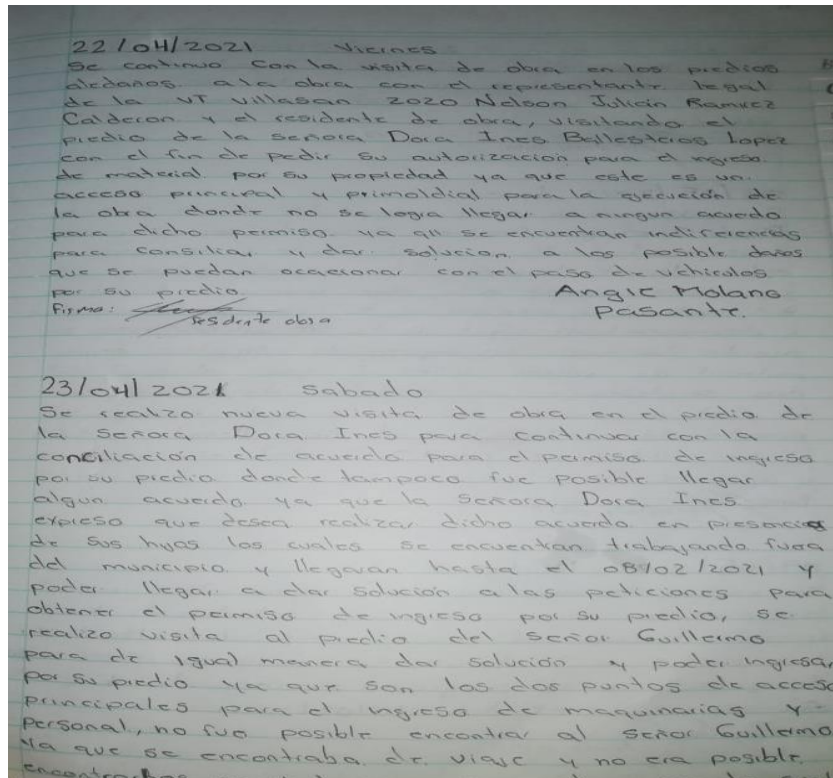 22/04/2021 Viernes
Se continuo con la visita de obra en los predios
aledaños a la obra con el representante legal
de la UT Villasan 2020 Nelson Julian Ramirez
Calderon y el residente de obra, visitando el
predio de la señora Dora Ines Ballesteros Lopez
con el fin de pedir su autorización para el ingreso
de material por su propiedad ya que este es un
acceso principal y primoldial para la ejecución de
la obra donde no se logia llegar a ningun acuerdo
para dicho permiso ya q se encuentran indiferencias
para consiliar y dar solucion a los posible daños
que se puedan ocacionar con el paso de vehiculos
por su predio
Angie Molano
Firma:
residente obra
Pasante.
23/04/2021 sabado
Se realizo nueva visita de obra en el predio de
la Señora Dora Ines para continuar con la
conciliación de acuerdo para el permiso de ingreso
por su predio donde tampoco fue posible llegar
algun acuerdo ya que la Señora Dora Ines
expreso que desea realizar dicho acuerdo en presencia
de sus hijos los cuales se encuentran trabajando fuera
del municipio y llegaran hasta el 08/02/2021 y
poder llegar a dar solución a las peticiones para
obtener el permiso de ingreso por su predio, se
realizo visita al predio del señor Guillermo
para de igual manera dar solución y poder ingresar
por su predio ya que son los dos puntos de acceso
principales para el ingreso de maquinarias y
personal, no fue posible encontrar al señor Guillermo
ya que se encontraba de viaje y no era posible